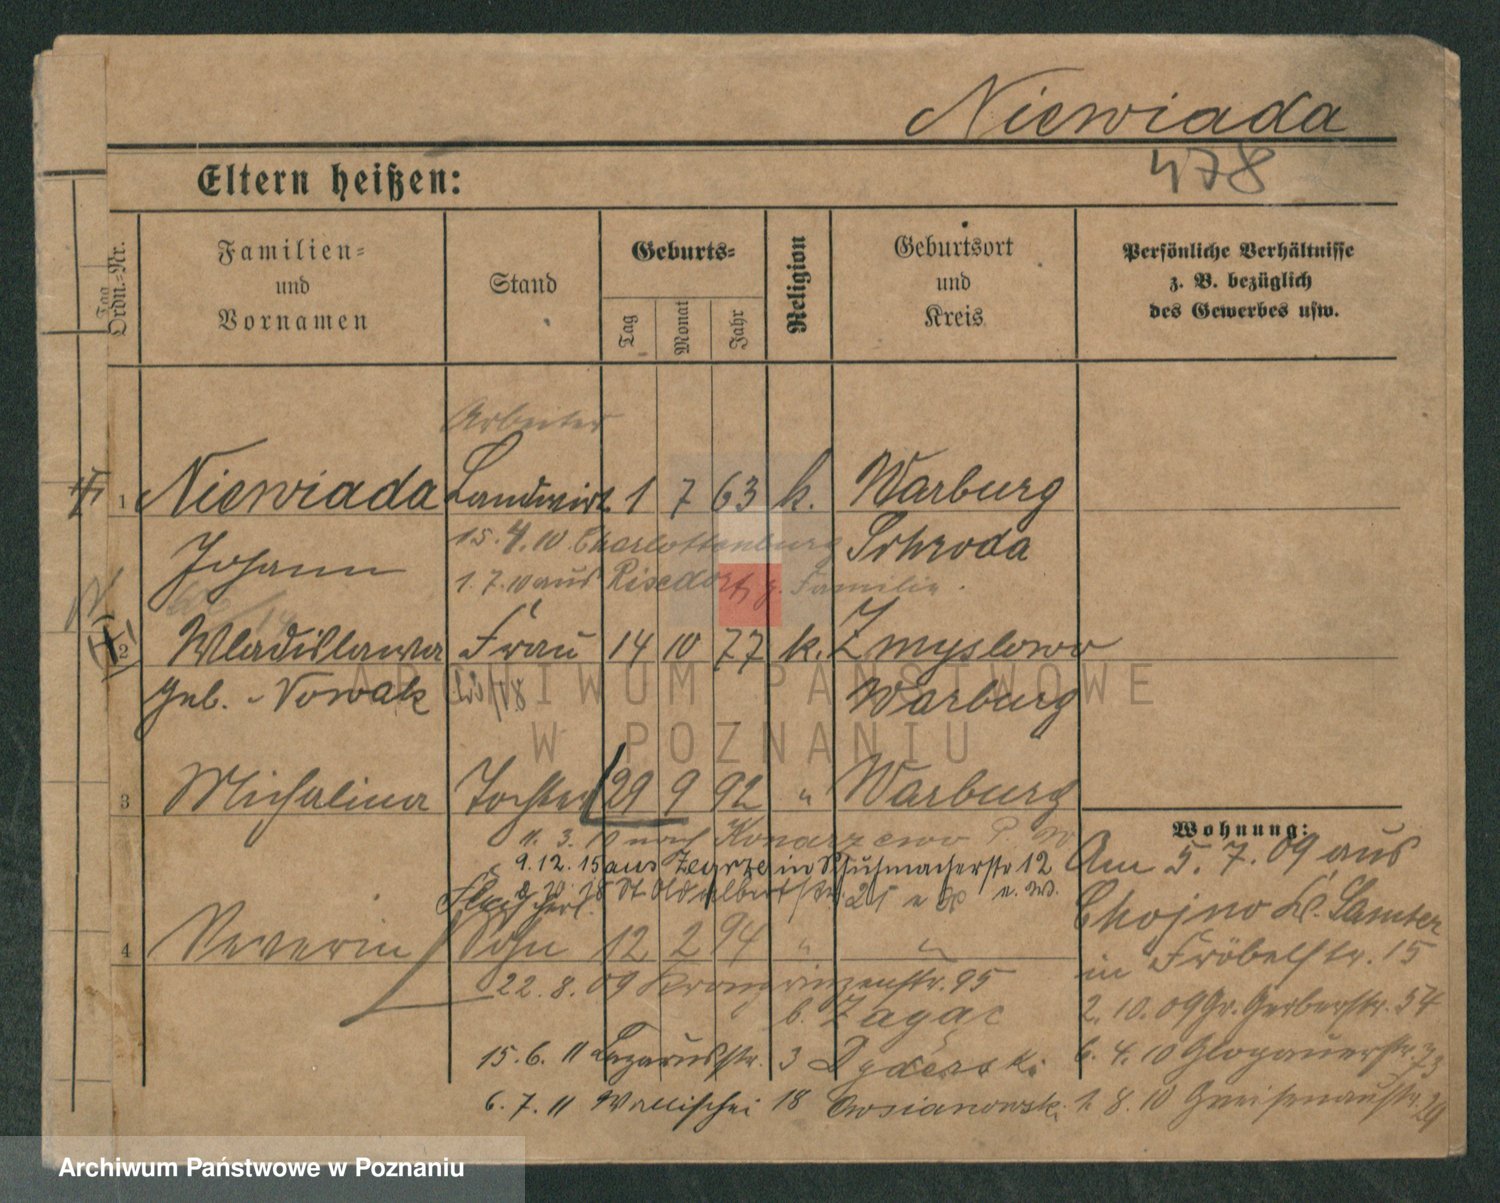 Niewiada
478
Eltern heißen:
Tag
Ordn.-Nr.
Familien-
und
Vornamen
Stand
Geburts-
Tag
Monat
Jahr
Religion
Geburtsort
und
Kreis
Persönliche Verhältnisse
z. B. bezüglich
des Gewerbes usw.
Arbeiter
1 Niewiada Landwirt 1 7 63 k. Warburg
Johann 15.4.10 Charlottenburg Schroda
1.7.10 aus z. Familie.
2 Wladislawa Frau 14 10 77 k. Zmyslowo
geb. Nowak Warburg
3 Michalina Tochter 29 9 92 " Warburg
11.3.10 nach Konarzewo
9.12.15 aus Zegrze in Schuhmacherstr 12
Fleischerl.
4 Severin Sohn 12 2 94 " "
22.8.09 Kronprinzenstr. 95
b. Zagac
15.6.11 Lazarusstr. 3
6.7.11 Wallischei 18
Wohnung:
Am 5.7.09 aus
Chojno Kr. Samter
in Fröbelstr. 15
2.10.09 Gr. Gerberstr. 54
6.4.10 Glogauerstr. 73
1.8.10 Gneisenaustr.
ARCHIWUM PAŃSTWOWE
W POZNANIU
Archiwum Państwowe w Poznaniu